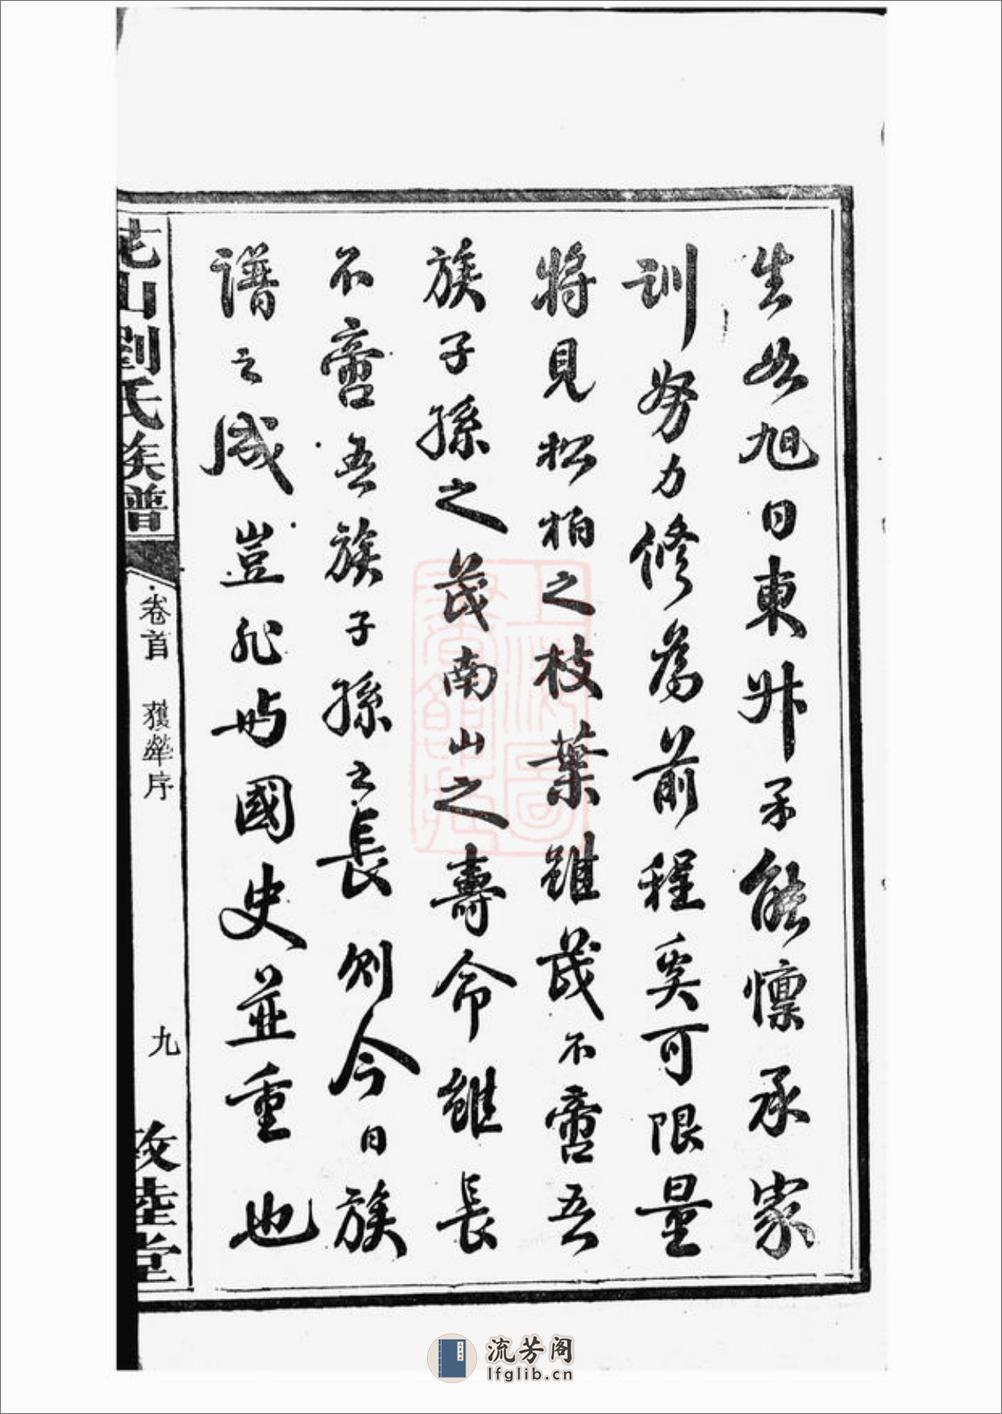 生如旭日東升予能懍承家
訓努力修為前程奚可限量
將見松柏之枝葉雖茂不啻吾
族子孫之茂南山之壽命雖長
不啻吾族子孫之長則今日族
譜之成豈非與國史並重也
山劉氏族譜
卷首
序
九
敦睦堂
上海圖書館藏
流芳阁
lfglib.cn